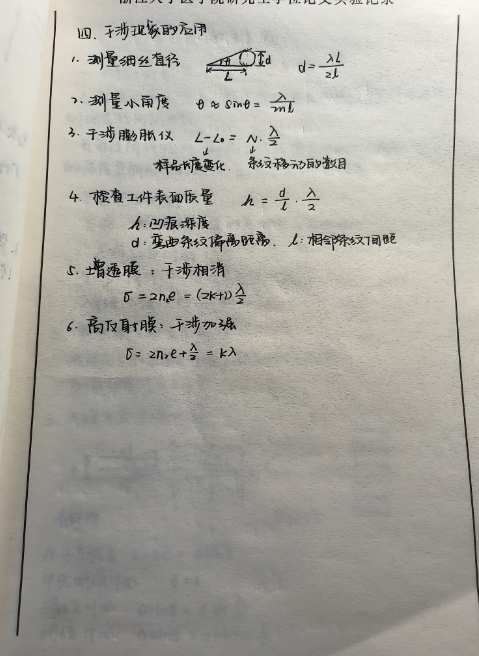 浙江大学医学院研究生学位论文实验记录
四、干涉现象的应用
1. 测量细丝直径 θ d L d = λL/2l
2. 测量小角度 θ ≈ sinθ = λ/2nl
3. 干涉膨胀仪 L-L₀ = N·λ/2
样品长度变化 条纹移动的数目
4. 检查工件表面质量 h = d/l · λ/2
h: 凹痕深度
d: 弯曲条纹偏离距离. l: 相邻条纹间距
5. 增透膜: 干涉相消
δ = 2n₂e = (2k+1)λ/2
6. 高反射膜: 干涉加强
δ = 2n₂e + λ/2 = kλ